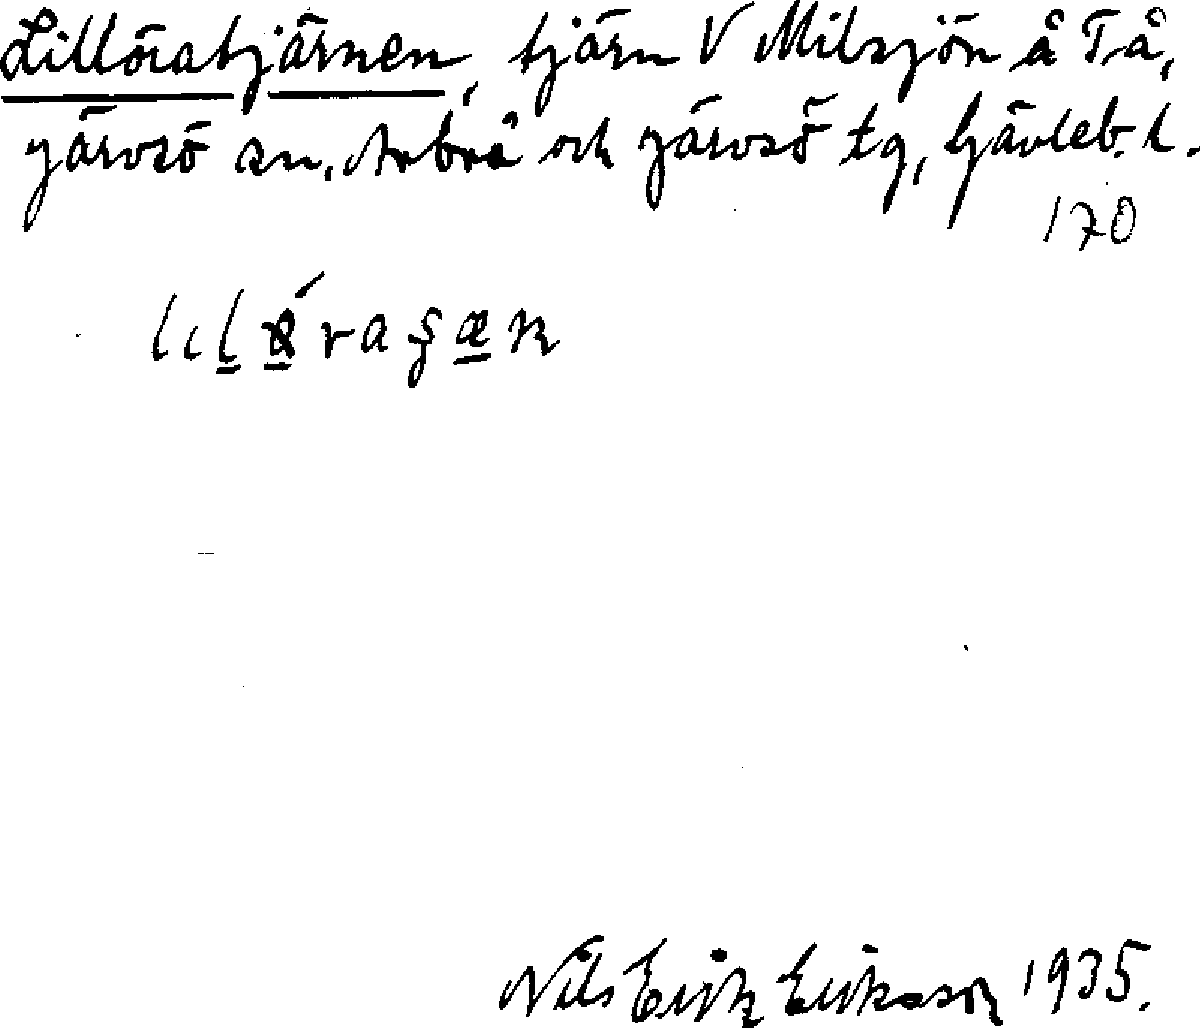 Lillöratjärnen, tjärn V Milsjön å Tå,
Järvsö sn, Arbrå och Järvsö tg, Gävleb. l.
170
Nils Erik Eriksson 1935.